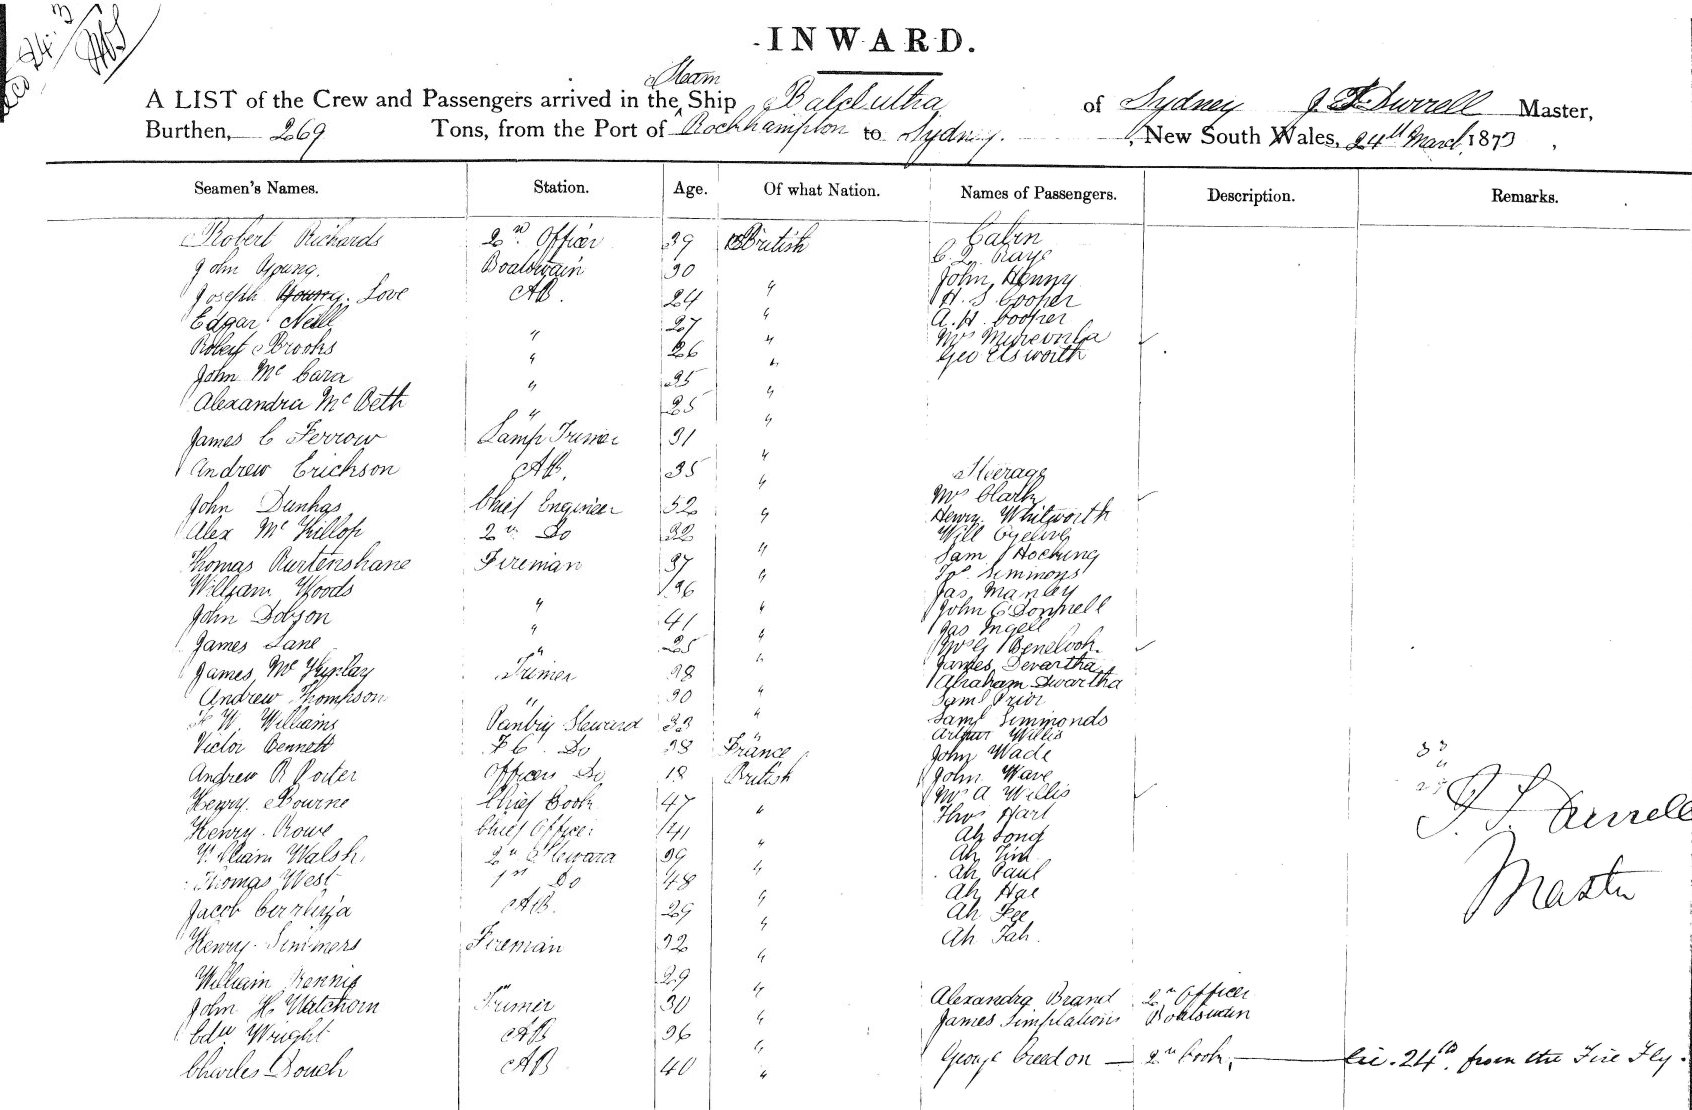 24.3
INWARD.
Steam
A LIST of the Crew and Passengers arrived in the Ship Balclutha of Sydney J. F. Durrell Master,
Burthen, 269 Tons, from the Port of Rockhampton to Sydney. , New South Wales, 24th March 1873 ,
Seamen's Names. Station. Age. Of what Nation. Names of Passengers. Description. Remarks.
Robert Richards 2nd Officer 39 British Cabin
John Young. Boatswain 30
Joseph Young. Love AB. 24 " John Henny
Edgar Neill " 27 " H. S. Cooper
Robert Brooks " 26 " A. H. Cooper
John Mc Cara " 35 " Mrs
Alexandra Mc Beth " 25 " Geo Elsworth
James C Ferrow Lamp Trimer 31 "
Andrew Erickson AB. 35 " Steerage
John Dunhas Chief Engineer 52 " Mrs Clark
Alex Mc Killop 2n Do 32 Henry Whitworth
Thomas Fireman 37 " Will
William Woods " 36 " Sam Hocking
John Dobson " 41 " Jos. Simmons
James Lane " 25 " Jas Manley
James Mc Kinlay Trimer 38 " John O'Donnell
Andrew Thompson " 30 " Jas Ingell
W. Williams Pantry Steward 33 " Mrs G Benelook.
Victor Bennett F C. Do 38 France James Devartha
Andrew R Porter Officers Do 18 British Abraham Dwartha
Henry Bourne Chief Cook 47 " Saml Prior
Henry. Rowe Chief Officer 41 " Saml Simmonds
William Walsh 2n Steward 39 " Arthur Willis
Thomas West 1st Do 48 " John Wade
Jacob AB. 29 " John Wave
Henry Simmers Fireman 32 " Mrs A Willis
William Rennie " 29 " Thos Hart
John H Watchorn Trimer 30 " Ah Song
Edw Wright AB 36 " Ah Tim
Charles Douch AB 40 " Ah Paul
Ah Hae
Ah Fee
Ah Fah.
Alexandra Brand 2n Officer
James Boatswain
George Creedon — 2n Cook, — 24th, from the Fire Fly.
33
29
J. F. Durrell
Master